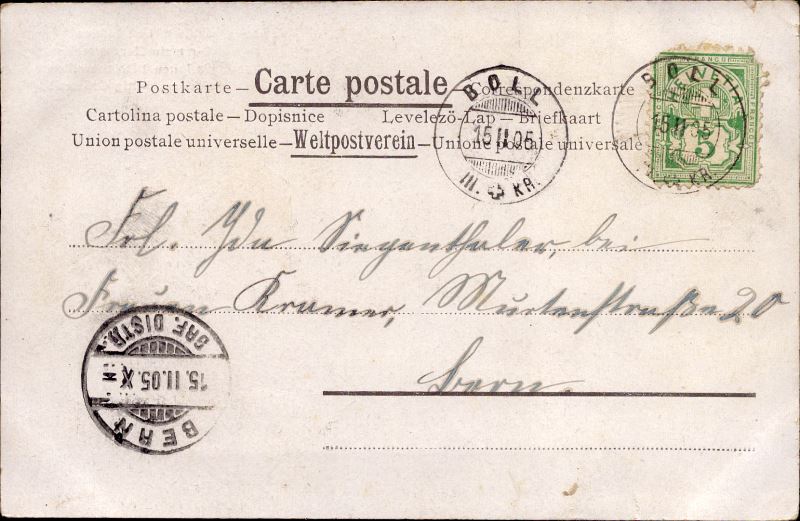 Postkarte – Carte postale – Correspondenzkarte
Cartolina postale – Dopisnice Levelezö-Lap – Briefkaart
Union postale universelle – Weltpostverein – Unione postale universale
BOLL
15 II 05
III. KR.
BOLL
15 II 05
KR.
5
Frl. Ida Siegenthaler, bei
Frauen Kramer, Murtenstraße 20
Bern.
BERN
15. II. 05. X
BRF. DISTR.